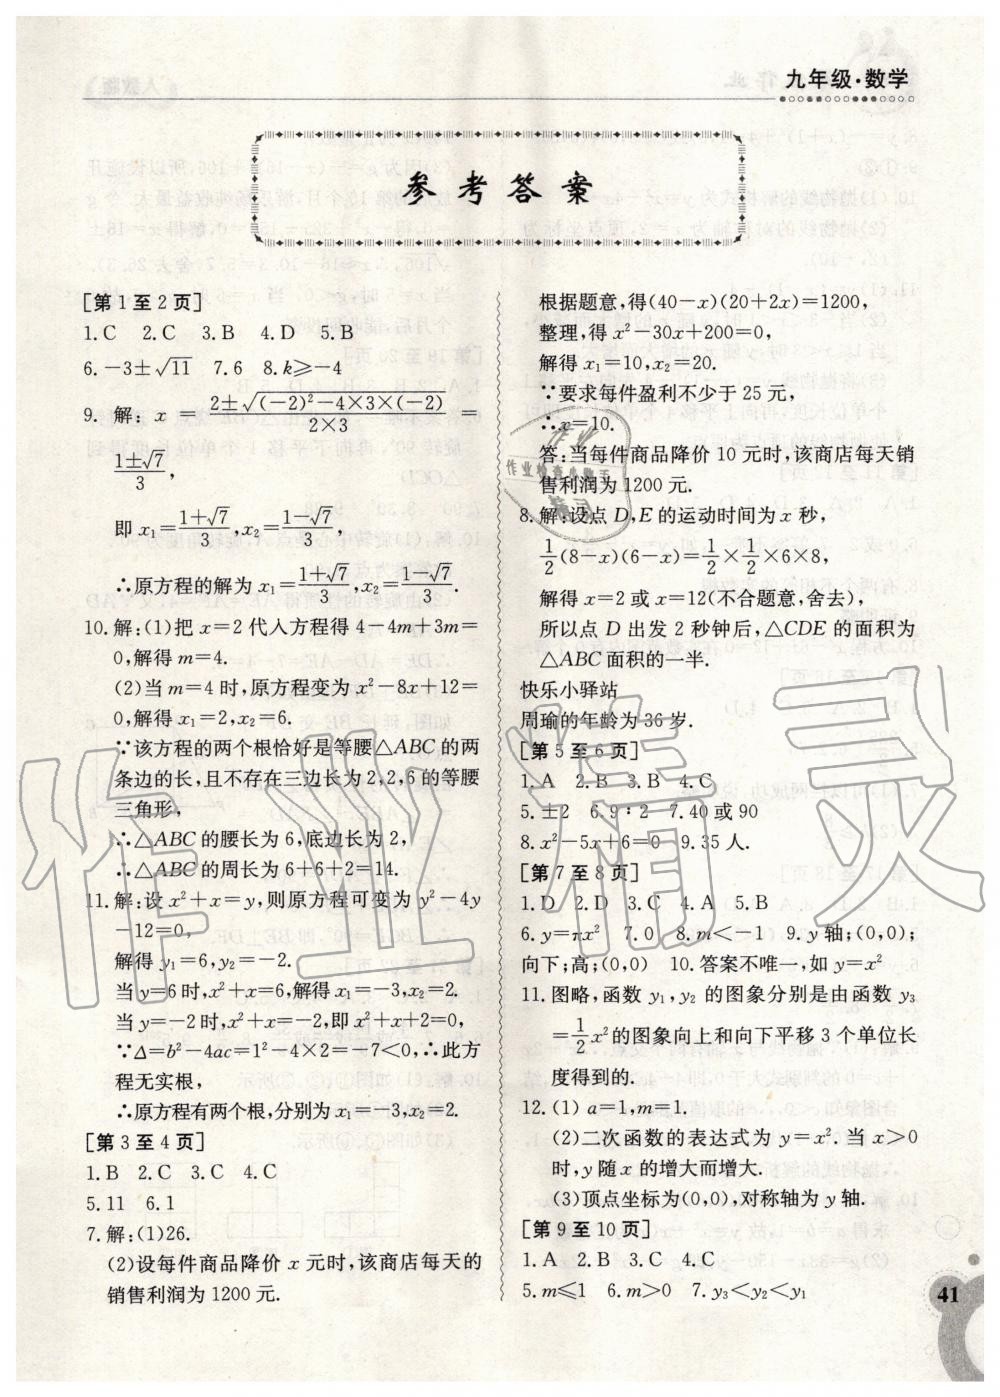 九年级·数学
参考答案
[第 1 至 2 页]
1.C 2.C 3.B 4.D 5.B
6.-3±√11 7.6 8.k≥-4
9. 解: x = (2±√((-2)²-4×3×(-2)))/(2×3) =
(1±√7)/3,
即 x₁=(1+√7)/3,x₂=(1-√7)/3.
∴原方程的解为 x₁=(1+√7)/3,x₂=(1-√7)/3.
10.解:(1)把 x=2 代入方程得 4-4m+3m=
0,解得 m=4.
(2)当 m=4 时,原方程变为 x²-8x+12=
0,解得 x₁=2,x₂=6.
∵该方程的两个根恰好是等腰△ABC 的两
条边的长,且不存在三边长为2,2,6的等腰
三角形,
∴△ABC 的腰长为 6,底边长为 2,
∴△ABC 的周长为 6+6+2=14.
11.解:设 x²+x=y,则原方程可变为 y²-4y
-12=0,
解得 y₁=6,y₂=-2.
当 y=6 时,x²+x=6,解得 x₁=-3,x₂=2.
当 y=-2 时,x²+x=-2,即 x²+x+2=0,
∵Δ=b²-4ac=1²-4×2=-7<0,∴此方
程无实根,
∴原方程有两个根,分别为 x₁=-3,x₂=2.
[第 3 至 4 页]
1.B 2.C 3.C 4.C
5.11 6.1
7.解:(1)26.
(2)设每件商品降价 x 元时,该商店每天的
销售利润为 1200 元.
根据题意,得(40-x)(20+2x)=1200,
整理,得 x²-30x+200=0,
解得 x₁=10,x₂=20.
∵要求每件盈利不少于 25 元,
∴x=10.
答:当每件商品降价 10 元时,该商店每天销
售利润为 1200 元.
8.解:设点 D,E 的运动时间为 x 秒,
1/2(8-x)(6-x)=1/2×1/2×6×8,
解得 x=2 或 x=12(不合题意,舍去),
所以点 D 出发 2 秒钟后,△CDE 的面积为
△ABC 面积的一半.
快乐小驿站
周瑜的年龄为 36 岁.
[第 5 至 6 页]
1.A 2.B 3.B 4.C
5.±2 6.9∶2 7.40 或 90
8.x²-5x+6=0 9.35 人.
[第 7 至 8 页]
1.D 2.D 3.C 4.A 5.B
6.y=πx² 7.0 8.m<-1 9.y 轴;(0,0);
向下;高;(0,0) 10.答案不唯一,如 y=x²
11.图略,函数 y₁,y₂ 的图象分别是由函数 y₃
=1/2x²的图象向上和向下平移 3 个单位长
度得到的.
12.(1) a=1,m=1.
(2)二次函数的表达式为 y=x². 当 x>0
时,y 随 x 的增大而增大.
(3)顶点坐标为(0,0),对称轴为 y 轴.
[第 9 至 10 页]
1.A 2.B 3.C 4.C
5.m≤1 6.m>0 7.y₃<y₂<y₁
41
作业精灵